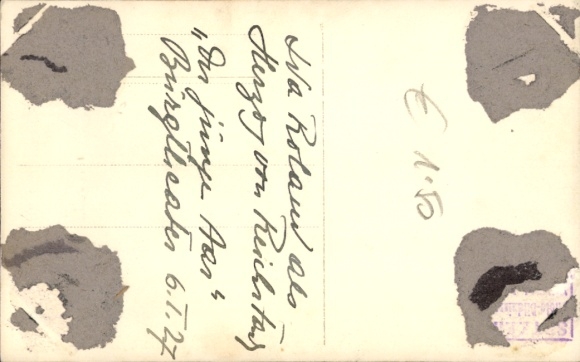 Ida Roland als
Herzog von Reichstadt
"Der junge Aar"
Burgtheater 6.I.27
€ 1.50